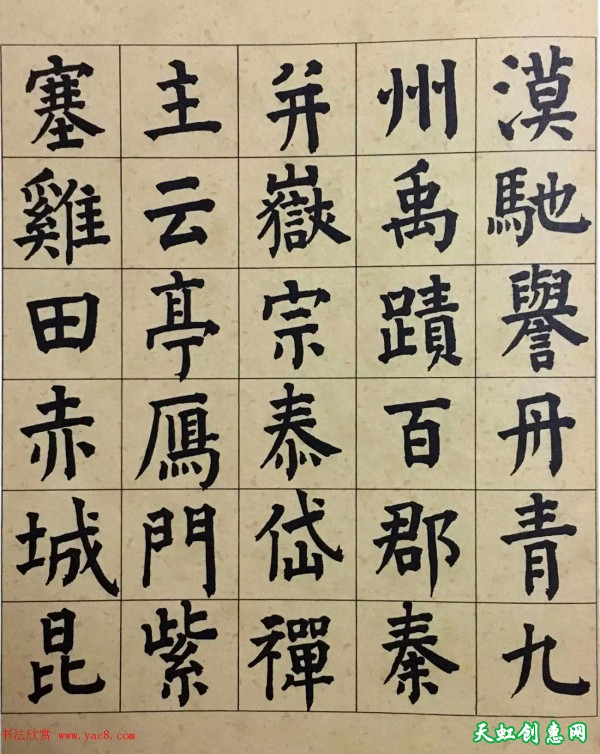 漠馳譽丹青九
州禹蹟百郡秦
并嶽宗泰岱禪
主云亭鴈門紫
塞雞田赤城昆
书法欣赏 www.yac8.com
天虹创惠网